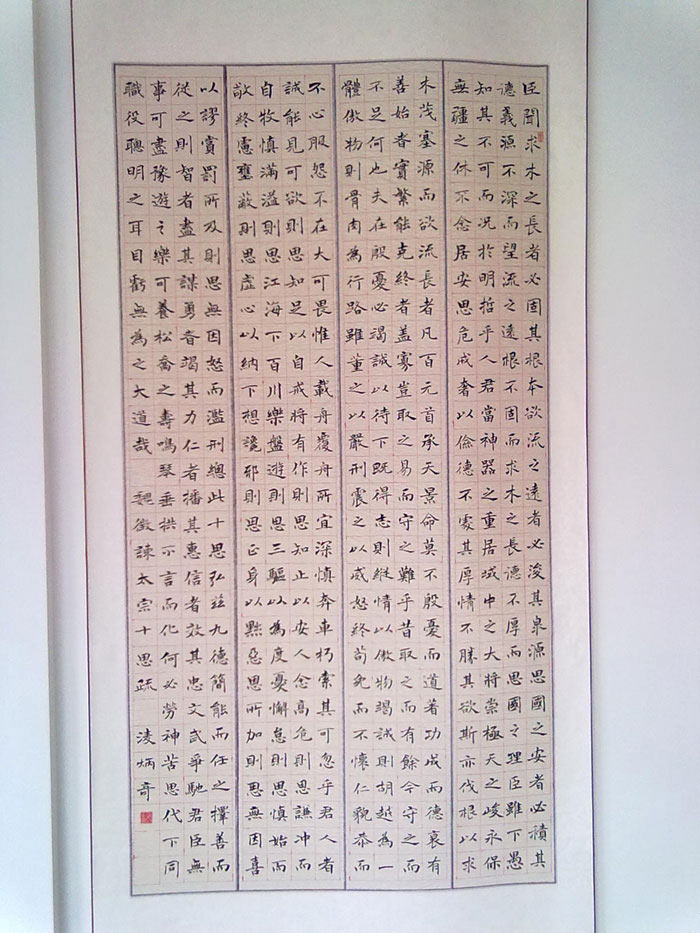 臣聞求木之長者必固其根本欲流之遠者必浚其泉源思國之安者必積其
德義源不深而望流之遠根不固而求木之長德不厚而思國之理臣雖下愚
知其不可而況於明哲乎人君當神器之重居域中之大將崇極天之峻永保
無疆之休不念居安思危戒奢以儉德不處其厚情不勝其欲斯亦伐根以求
木茂塞源而欲流長者凡百元首承天景命莫不殷憂而道著功成而德衰有
善始者實繁能克終者蓋寡豈取之易而守之難乎昔取之而有餘今守之而
不足何也夫在殷憂必竭誠以待下既得志則縱情以傲物竭誠則胡越為一
體傲物則骨肉為行路雖董之以嚴刑震之以威怒終苟免而不懷仁貌恭而
不心服怨不在大可畏惟人載舟覆舟所宜深慎奔車朽索其可忽乎君人者
誠能見可欲則思知足以自戒將有作則思知止以安人念高危則思謙沖而
自牧慎滿溢則思江海下百川樂盤遊則思三驅以為度憂懈怠則思慎始而
敬終慮壅蔽則思虛心以納下想讒邪則思正身以黜惡思所加則思無因喜
以謬賞罰所及則思無因怒而濫刑總此十思弘茲九德簡能而任之擇善而
從之則智者盡其謀勇者竭其力仁者播其惠信者效其忠文武爭馳君臣無
事可盡豫遊之樂可養松喬之壽鳴琴垂拱不言而化何必勞神苦思代下同
職役聰明之耳目虧無為之大道哉 魏徵諫太宗十思疏 凌炳奇